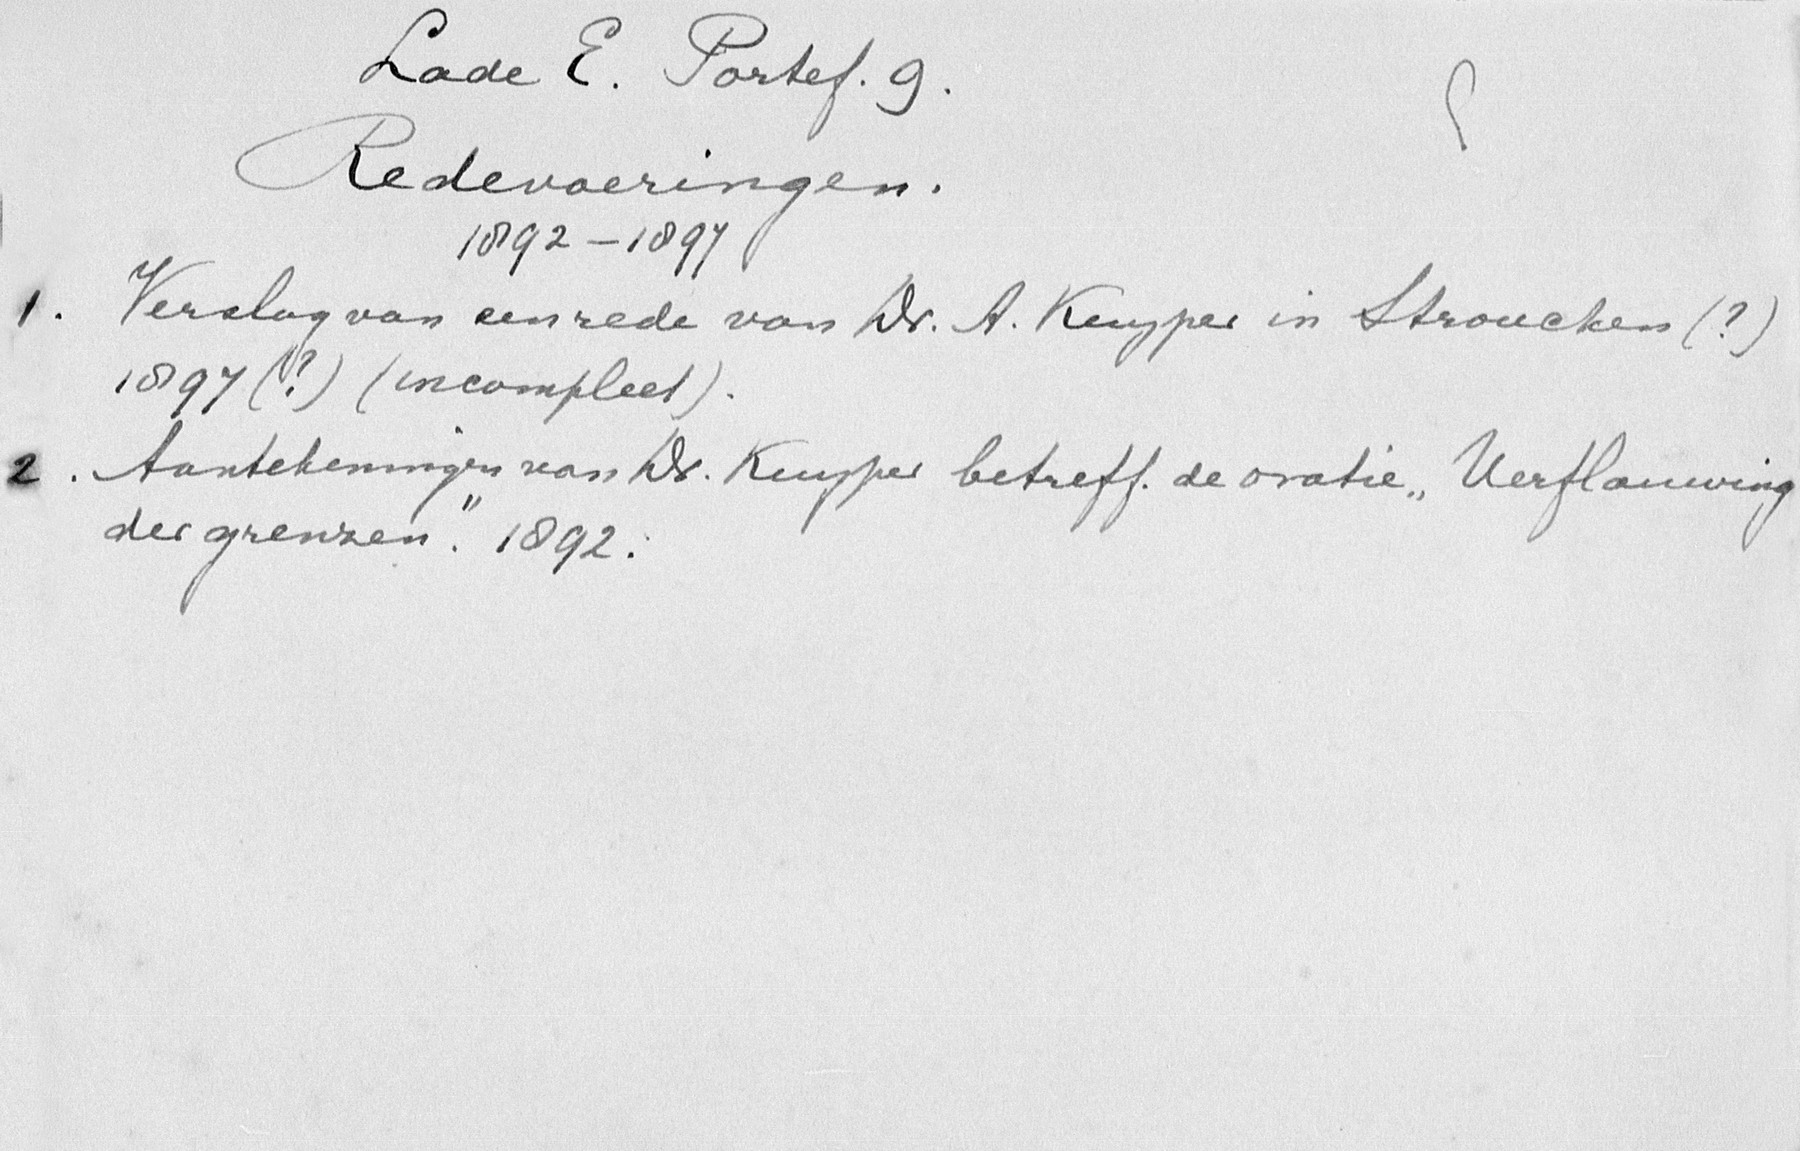 Lade E. Portef. 9.
Redevoeringen.
1892 – 1897
1. Verslag van een rede van Dr. A. Kuyper in Stroucken (?)
1897 (?) (incompleet).
2. Aantekeningen van Dr. Kuyper betreff. de oratie „Verflauwing
der grenzen." 1892.